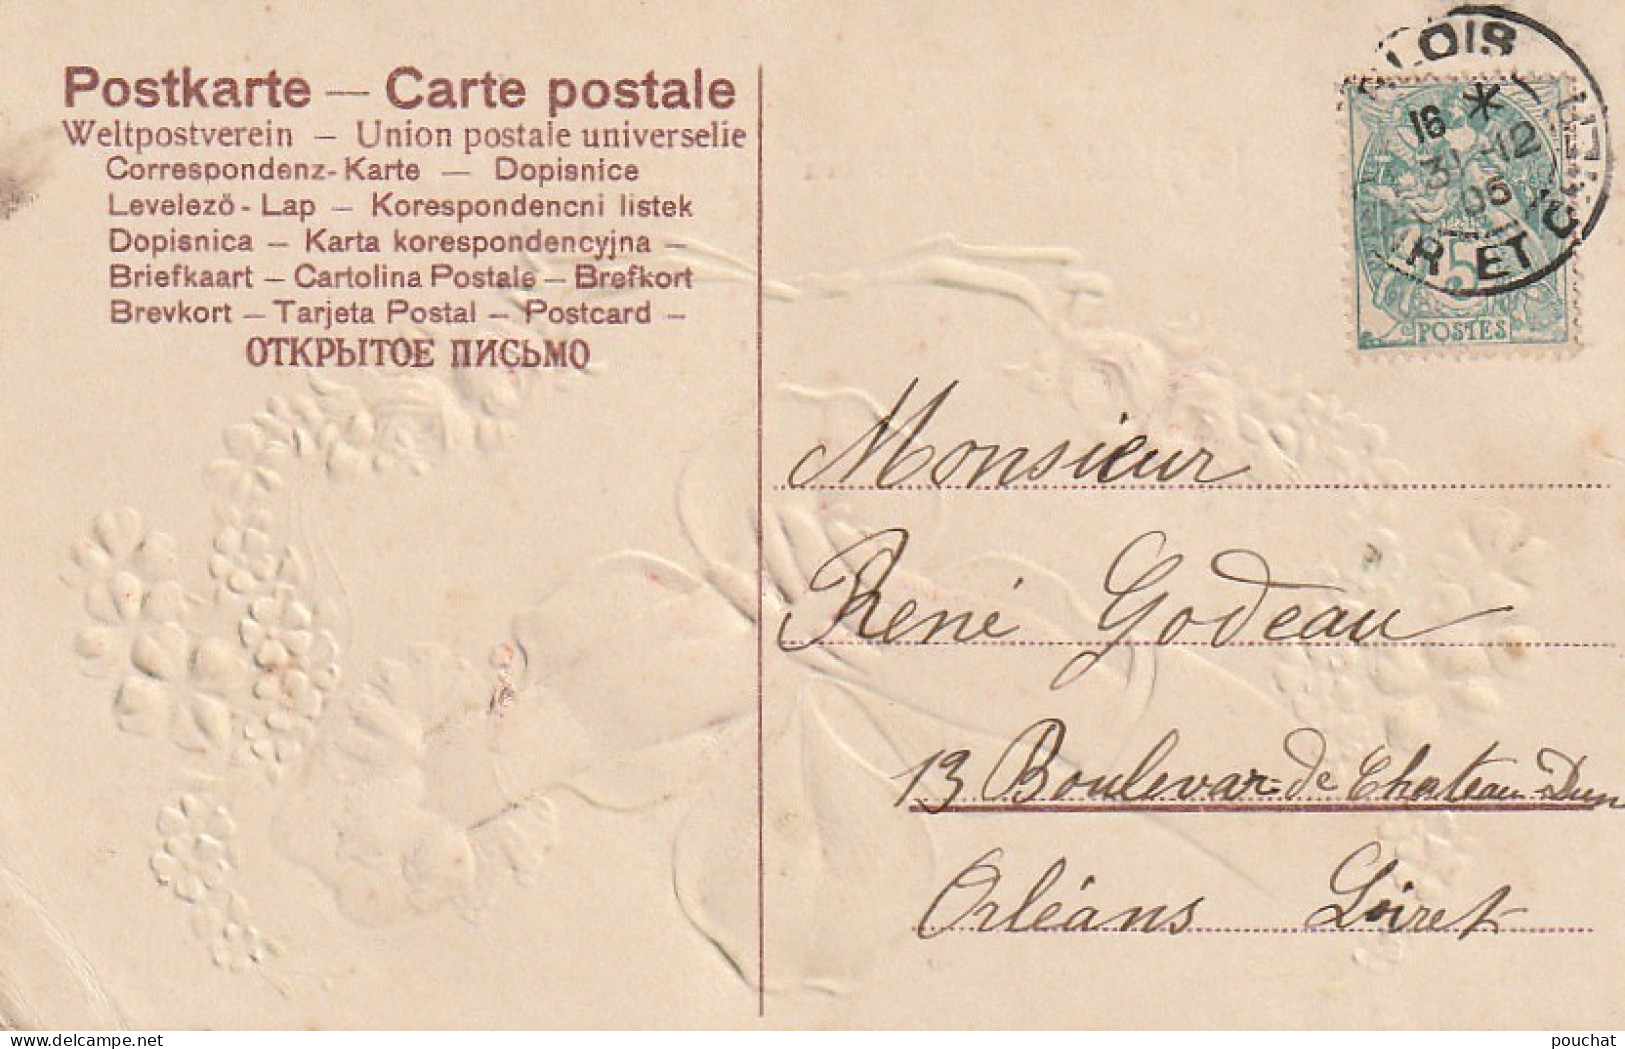 Postkarte — Carte postale
Weltpostverein — Union postale universelle
Correspondenz-Karte — Dopisnice
Levelező - Lap — Korespondencni listek
Dopisnica — Karta korespondencyjna —
Briefkaart — Cartolina Postale — Brefkort
Brevkort — Tarjeta Postal — Postcard —
ОТКРЫТОЕ ПИСЬМО
BLOIS
16 *
31-12
06
ET C
5
POSTES
Monsieur
René Godeau
13 Boulevar de Chateau-Dun
Orléans Loiret
www.delcampe.net
pouchat